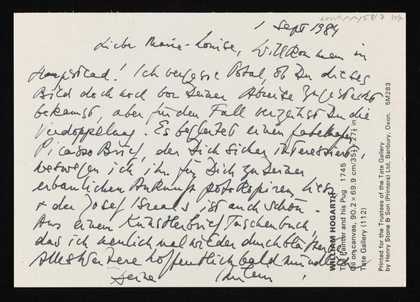 1 Sept 1984
Liebe Marie-Louise, Willkommen in
Hampstead! Ich vergesse total, ob Du dieses
Bild doch noch vor Deiner Abreise zugesteckt
bekamst, aber für den Fall verzeihst Du die
Verdoppelung. Es begleitet einen fabelhaften
Picasso Brief, der Dich sicher interessiert
weswegen ich ihn für Dich zu Deiner
erbaulichen Ankunft fotokopieren liess
& der Josef Israels ist auch schön.
Aus einem Künstlerbrief Taschenbuch,
das ich neulich mal wieder durchblätterte.
Alles Weitere hoffentlich bald mündlich
Deine
WILLIAM HOGARTH
The Painter and his Pug 1745
Oil on canvas, 90.2 × 69.9 cm/35½ × 27½ in
Tate Gallery (112)
Printed for the Trustees of the Tate Gallery
by Henry Stone & Son (Printers) Ltd, Banbury, Oxon. 5M283